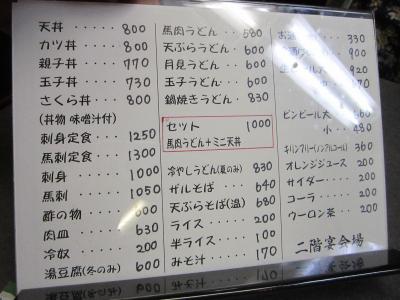 天丼 ····· 800
カツ丼 ···· 800
親子丼 ···· 770
玉子丼 ···· 730
さくら丼 ··· 800
(丼物 味噌汁付)
刺身定食 ··· 1250
馬刺定食 ··· 1300
刺身 ···· 1000
馬刺 ···· 1050
酢の物 ···· 600
肉皿 ····· 630
冷奴 ····· 200
湯豆腐(冬のみ) 600
馬肉うどん ·· 580
天ぷらうどん ·
月見うどん ··
玉子うどん ··
鍋焼きうどん ·· 830
セット 1000
馬肉うどん+ミニ天丼
冷やしうどん(夏のみ) 830
ザルそば ··· 640
天ぷらそば(温) 680
ライス ···· 200
半ライス ··· 100
みそ汁 ···· 170
330
900
920
ビンビール大
小 ·· 480
キリンフリー(ノンアルコール) 360
オレンジジュース ·· 200
サイダー ···· 200
コーラ ····· 200
ウーロン茶 ··· 200
二階宴会場